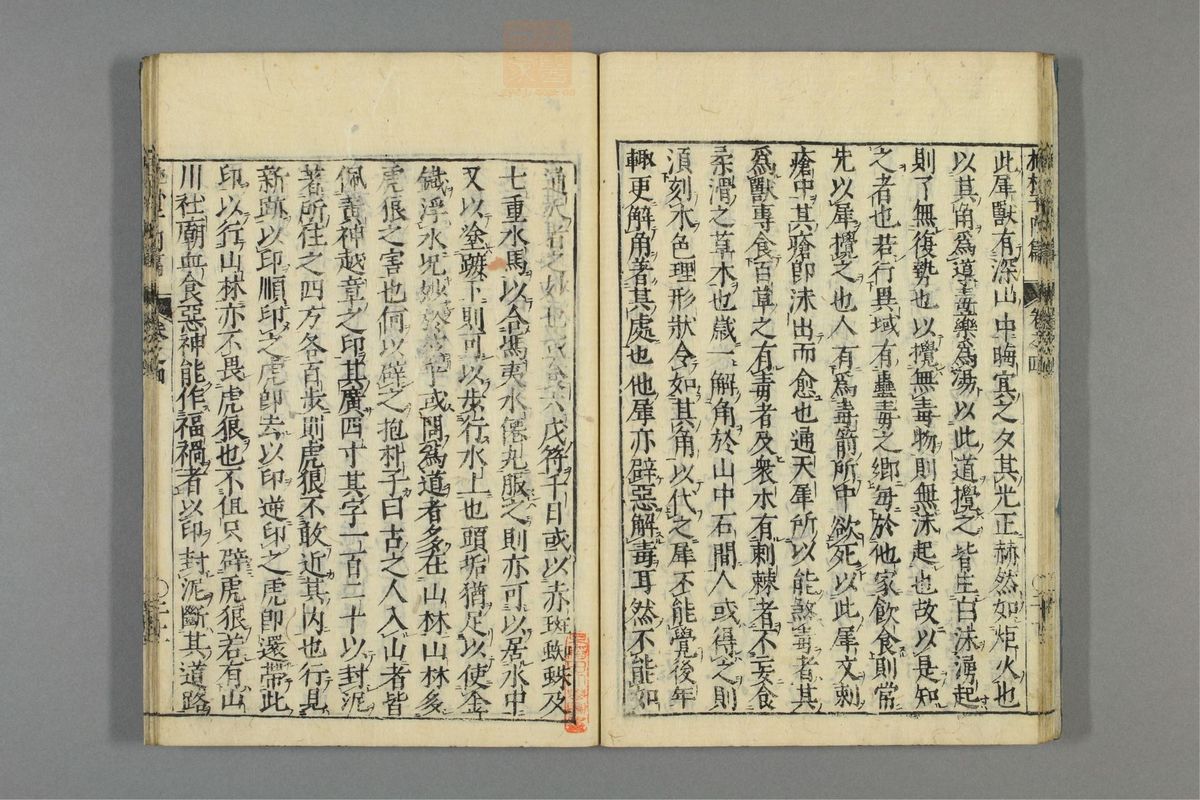 此犀獸有深山中晦冥之夕其光正赫然如炬火也
以其角爲導毒藥爲湯以此道攪之皆生白沫湧起
則了無復勢也以攪無毒物則無沫起也故以是知
之者也若行異域有蠱毒之鄉每於他家飲食則常
先以犀攪之也人有爲毒箭所中欲死以此犀文刺
瘡中其瘡即沫出而愈也通天犀所以能煞毒者其
爲獸專食百草之有毒者及衆木有刺棘者不妄食
柔滑之草木也歲一解角於山中石間人或得之則
須刻木色理形狀令如其角以代之犀不能覺後年
輙更解角著其處也他犀亦辟惡解毒耳然不能如
通天者之妙也或食六戊符千日或以赤斑蜘蛛及
七重水馬以合馮夷水僊丸服之則亦可以居水中
又以塗蹠下則可以步行水上也頭垢猶足以使金
鐵浮水况妙於茲乎或問爲道者多在山林山林多
虎狼之害也何以辟之抱朴子曰古之人入山者皆
佩黃神越章之印其廣四寸其字一百二十以封泥
著所住之四方各百步則虎狼不敢近其内也行見
新跡以印順印之虎即去以印逆印之虎即還帶此
印以行山林亦不畏虎狼也不但只辟虎狼若有山
川社廟血食惡神能作福禍者以印封泥斷其道路
卷之四